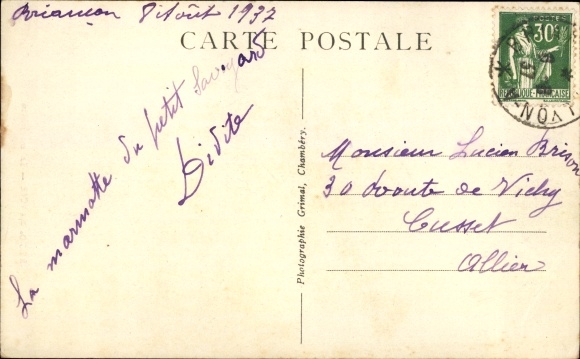 Briançon 8 Août 1937
CARTE POSTALE
La marmotte du petit Savoyard
Didite
Photographie Grimal, Chambéry.
Monsieur Lucien Brison
30 route de Vichy
Cusset
Allier
POSTES
30c
REPUBLIQUE FRANÇAISE
LYON